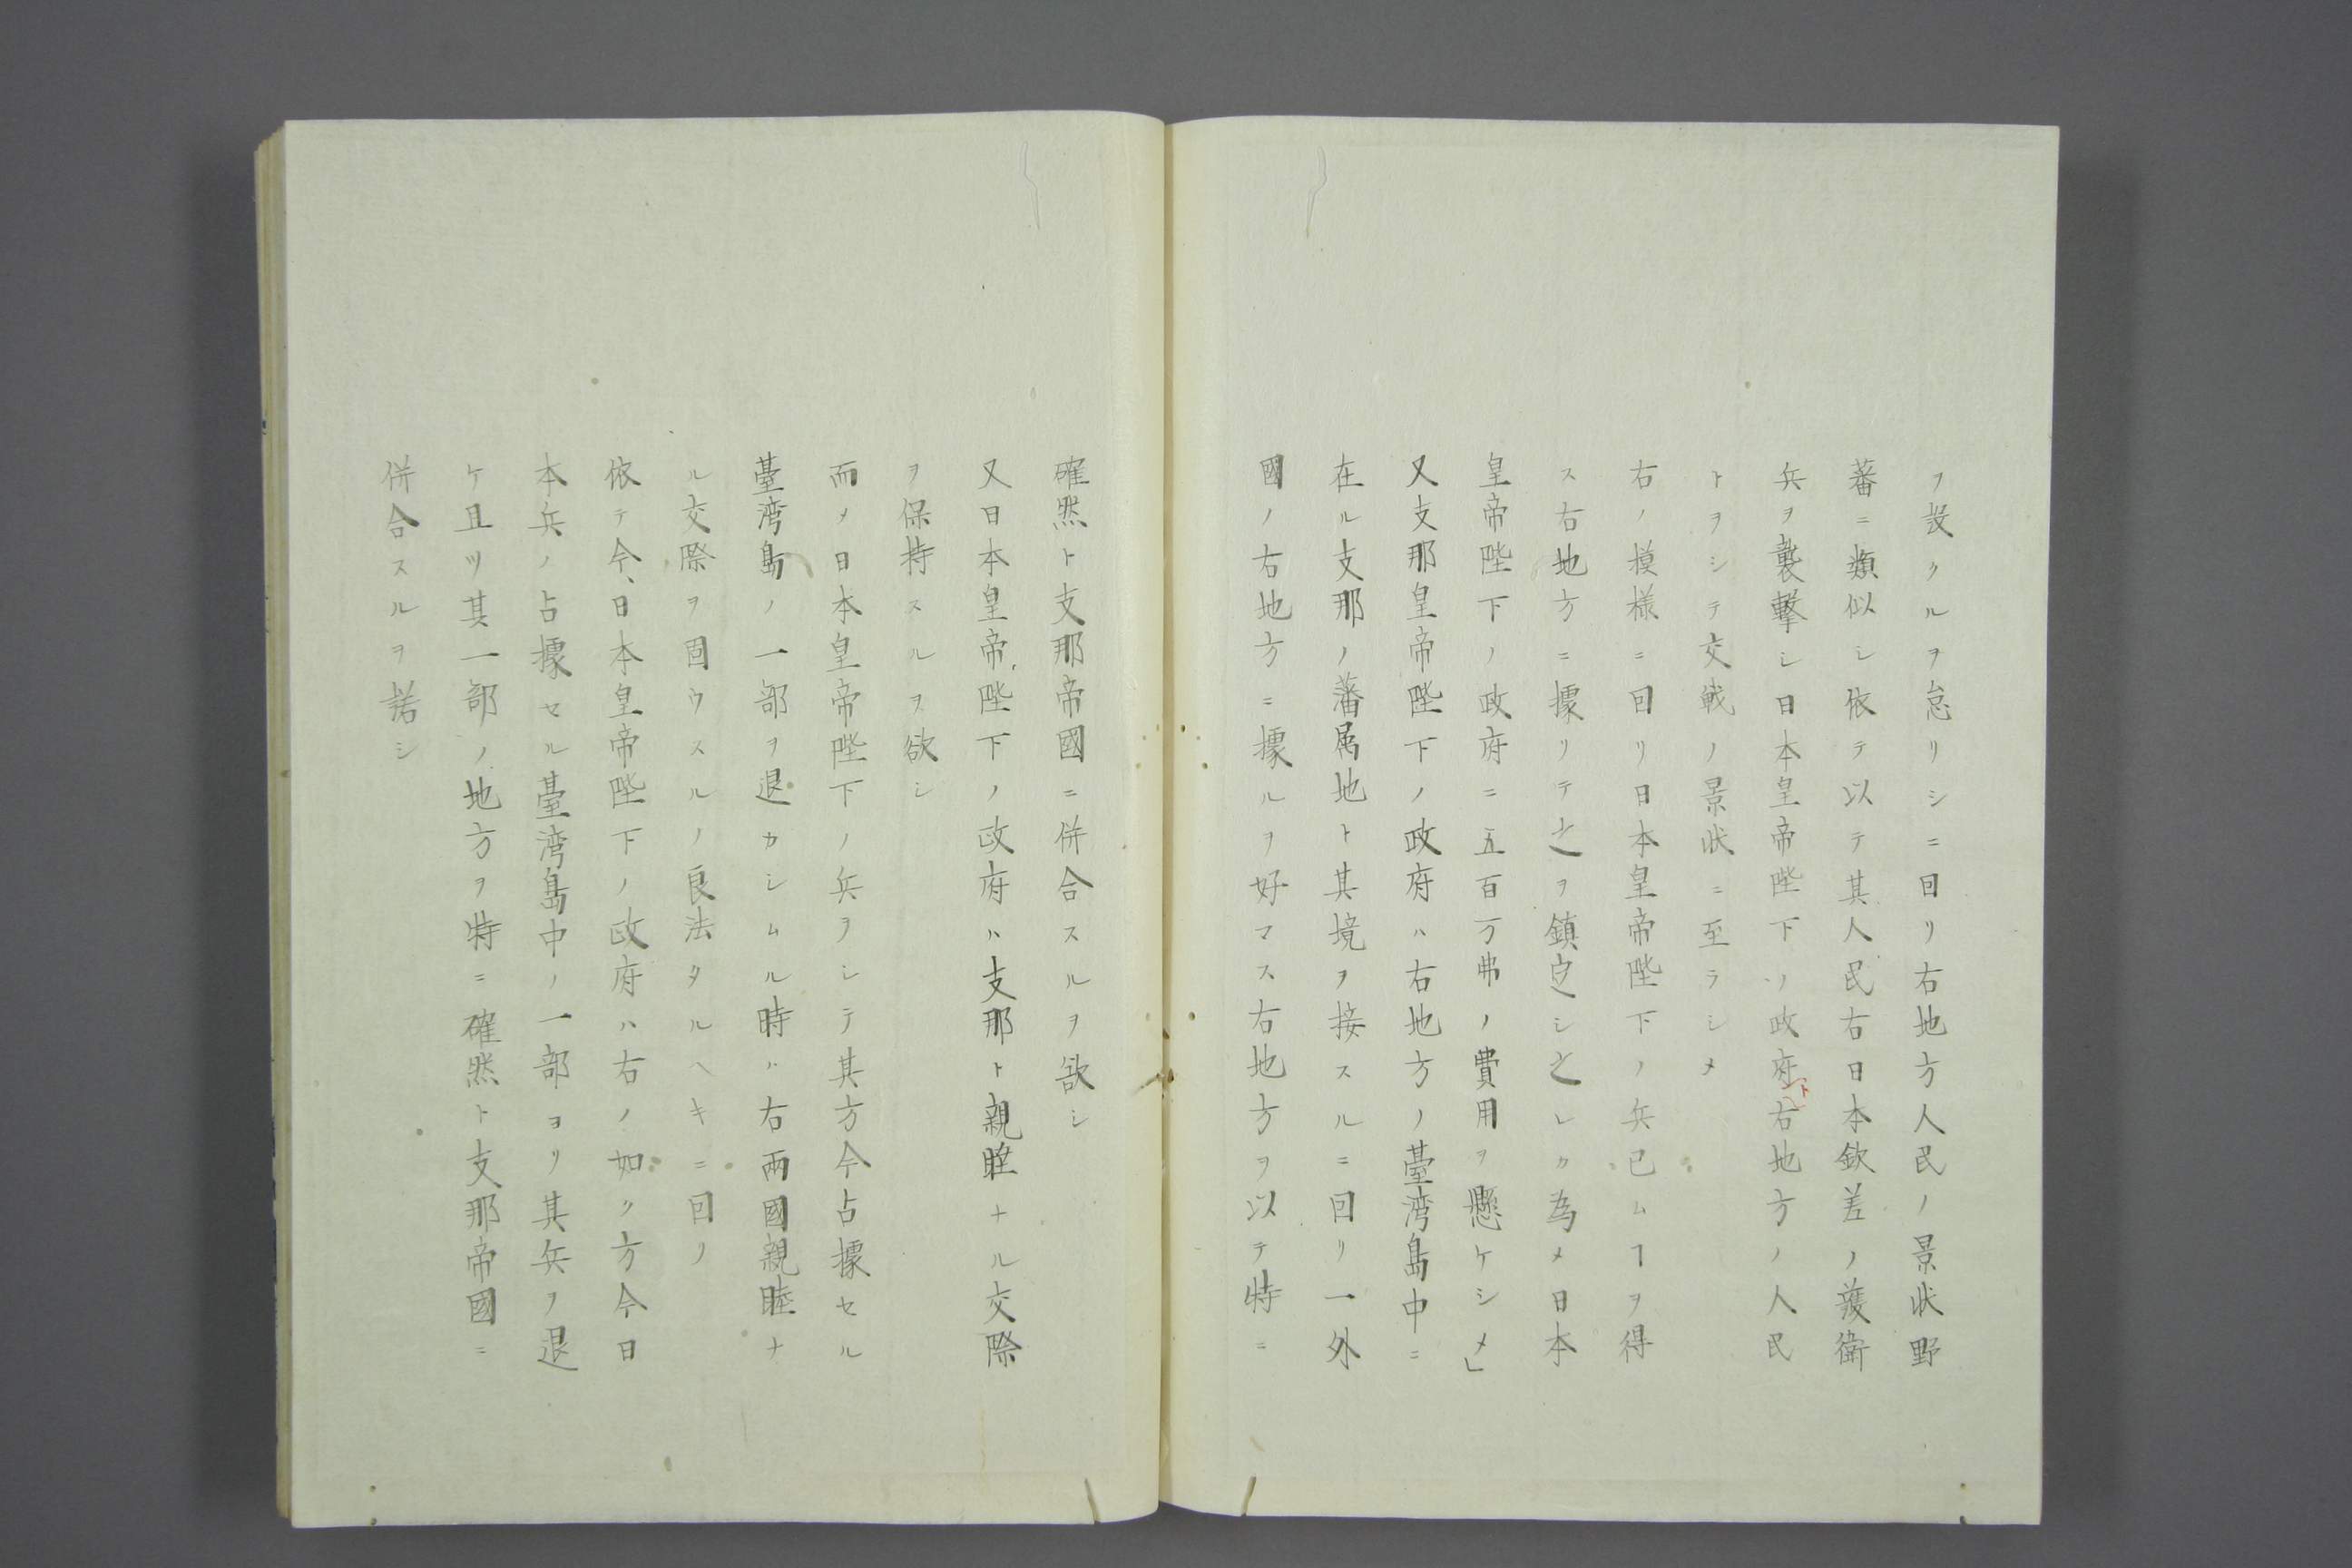 ヲ設クルヲ怠リシニ回リ右地方人民ノ景状野
蕃ニ類似シ依テ以テ其人民右日本欽差ノ護衛
兵ヲ襲撃シ日本皇帝陛下ノ政府ト右地方ノ人民
トヲシテ交戦ノ景状ニ至ラシメ
右ノ模様ニ回リ日本皇帝陛下ノ兵已ムヿヲ得
ス右地方ニ據リテ之ヲ鎮定シ之レカ為メ日本
皇帝陛下ノ政府ニ五百万弗ノ費用ヲ懸ケシメ」
又支那皇帝陛下ノ政府ハ右地方ノ臺湾島中ニ
在ル支那ノ藩属地ト其境ヲ接スルニ回リ一外
國ノ右地方ニ據ルヲ好マス右地方ヲ以テ特ニ
確然ト支那帝國ニ併合スルヲ欲シ
又日本皇帝陛下ノ政府ハ支那ト親睦ナル交際
ヲ保持スルヲ欲シ
而メ日本皇帝陛下ノ兵ヲシテ其方今占據セル
臺湾島ノ一部ヲ退カシムル時ハ右兩國親睦ナ
ル交際ヲ固ウスルノ良法タルヘキニ回リ
依テ今、日本皇帝陛下ノ政府ハ右ノ如ク方今日
本兵ノ占據セル臺湾島中ノ一部ヨリ其兵ヲ退
ケ且ツ其一部ノ地方ヲ特ニ確然ト支那帝國ニ
併合スルヲ諾シ